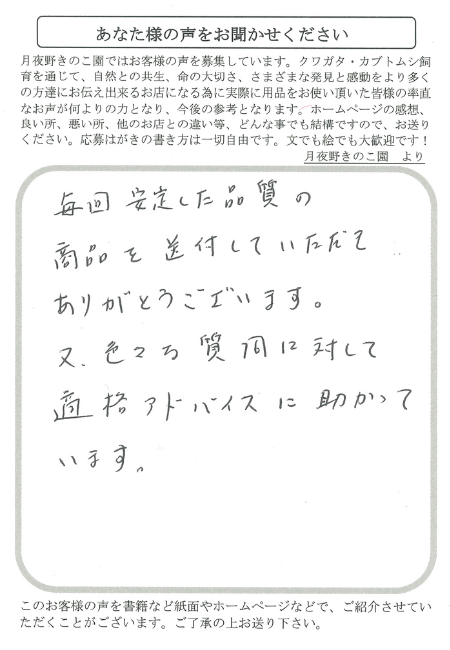 あなた様の声をお聞かせください
月夜野きのこ園ではお客様の声を募集しています。クワガタ・カブトムシ飼
育を通じて、自然との共生、命の大切さ、さまざまな発見と感動をより多く
の方達にお伝え出来るお店になる為に実際に用品をお使い頂いた皆様の率直
なお声が何よりの力となり、今後の参考となります。ホームページの感想、
良い所、悪い所、他のお店との違い等、どんな事でも結構ですので、お送り
ください。応募はがきの書き方は一切自由です。文でも絵でも大歓迎です！
月夜野きのこ園　より
毎回安定した品質の
商品を送付していただきて
ありがとうございます。
又、色々な質問に対して
適格アドバイスに助かって
います。
このお客様の声を書籍など紙面やホームページなどで、ご紹介させてい
ただくことがございます。ご了承の上お送り下さい。